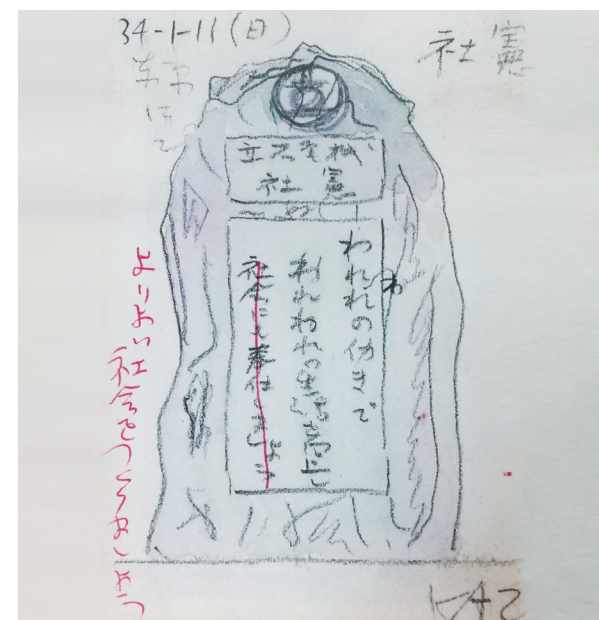 34-1-11(日)
社憲
東京
にて
立
立石電機
社憲
われわれの働きで
われわれの生活を高め
社会にも奉仕しましょう
よりよい社会をつくりましょう